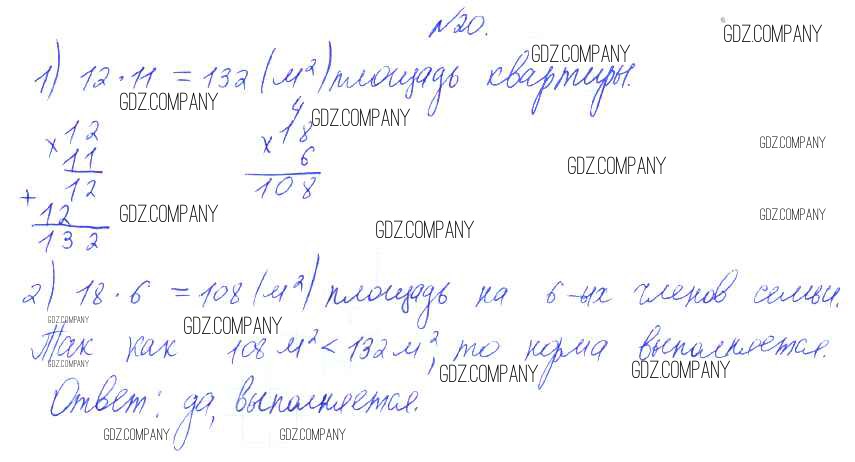 №20.
GDZ.COMPANY
1) 12 · 11 = 132 (м²) площадь квартиры.
GDZ.COMPANY
GDZ.COMPANY
GDZ.COMPANY
× 12
11
+ 12
12
132
4
× 18
6
108
GDZ.COMPANY
GDZ.COMPANY
GDZ.COMPANY
GDZ.COMPANY
GDZ.COMPANY
2) 18 · 6 = 108 (м²) площадь на 6-ых членов семьи.
GDZ.COMPANY
GDZ.COMPANY
Так как 108 м² < 132 м², то норма выполняется.
GDZ.COMPANY
GDZ.COMPANY
GDZ.COMPANY
Ответ: да, выполняется.
GDZ.COMPANY
GDZ.COMPANY